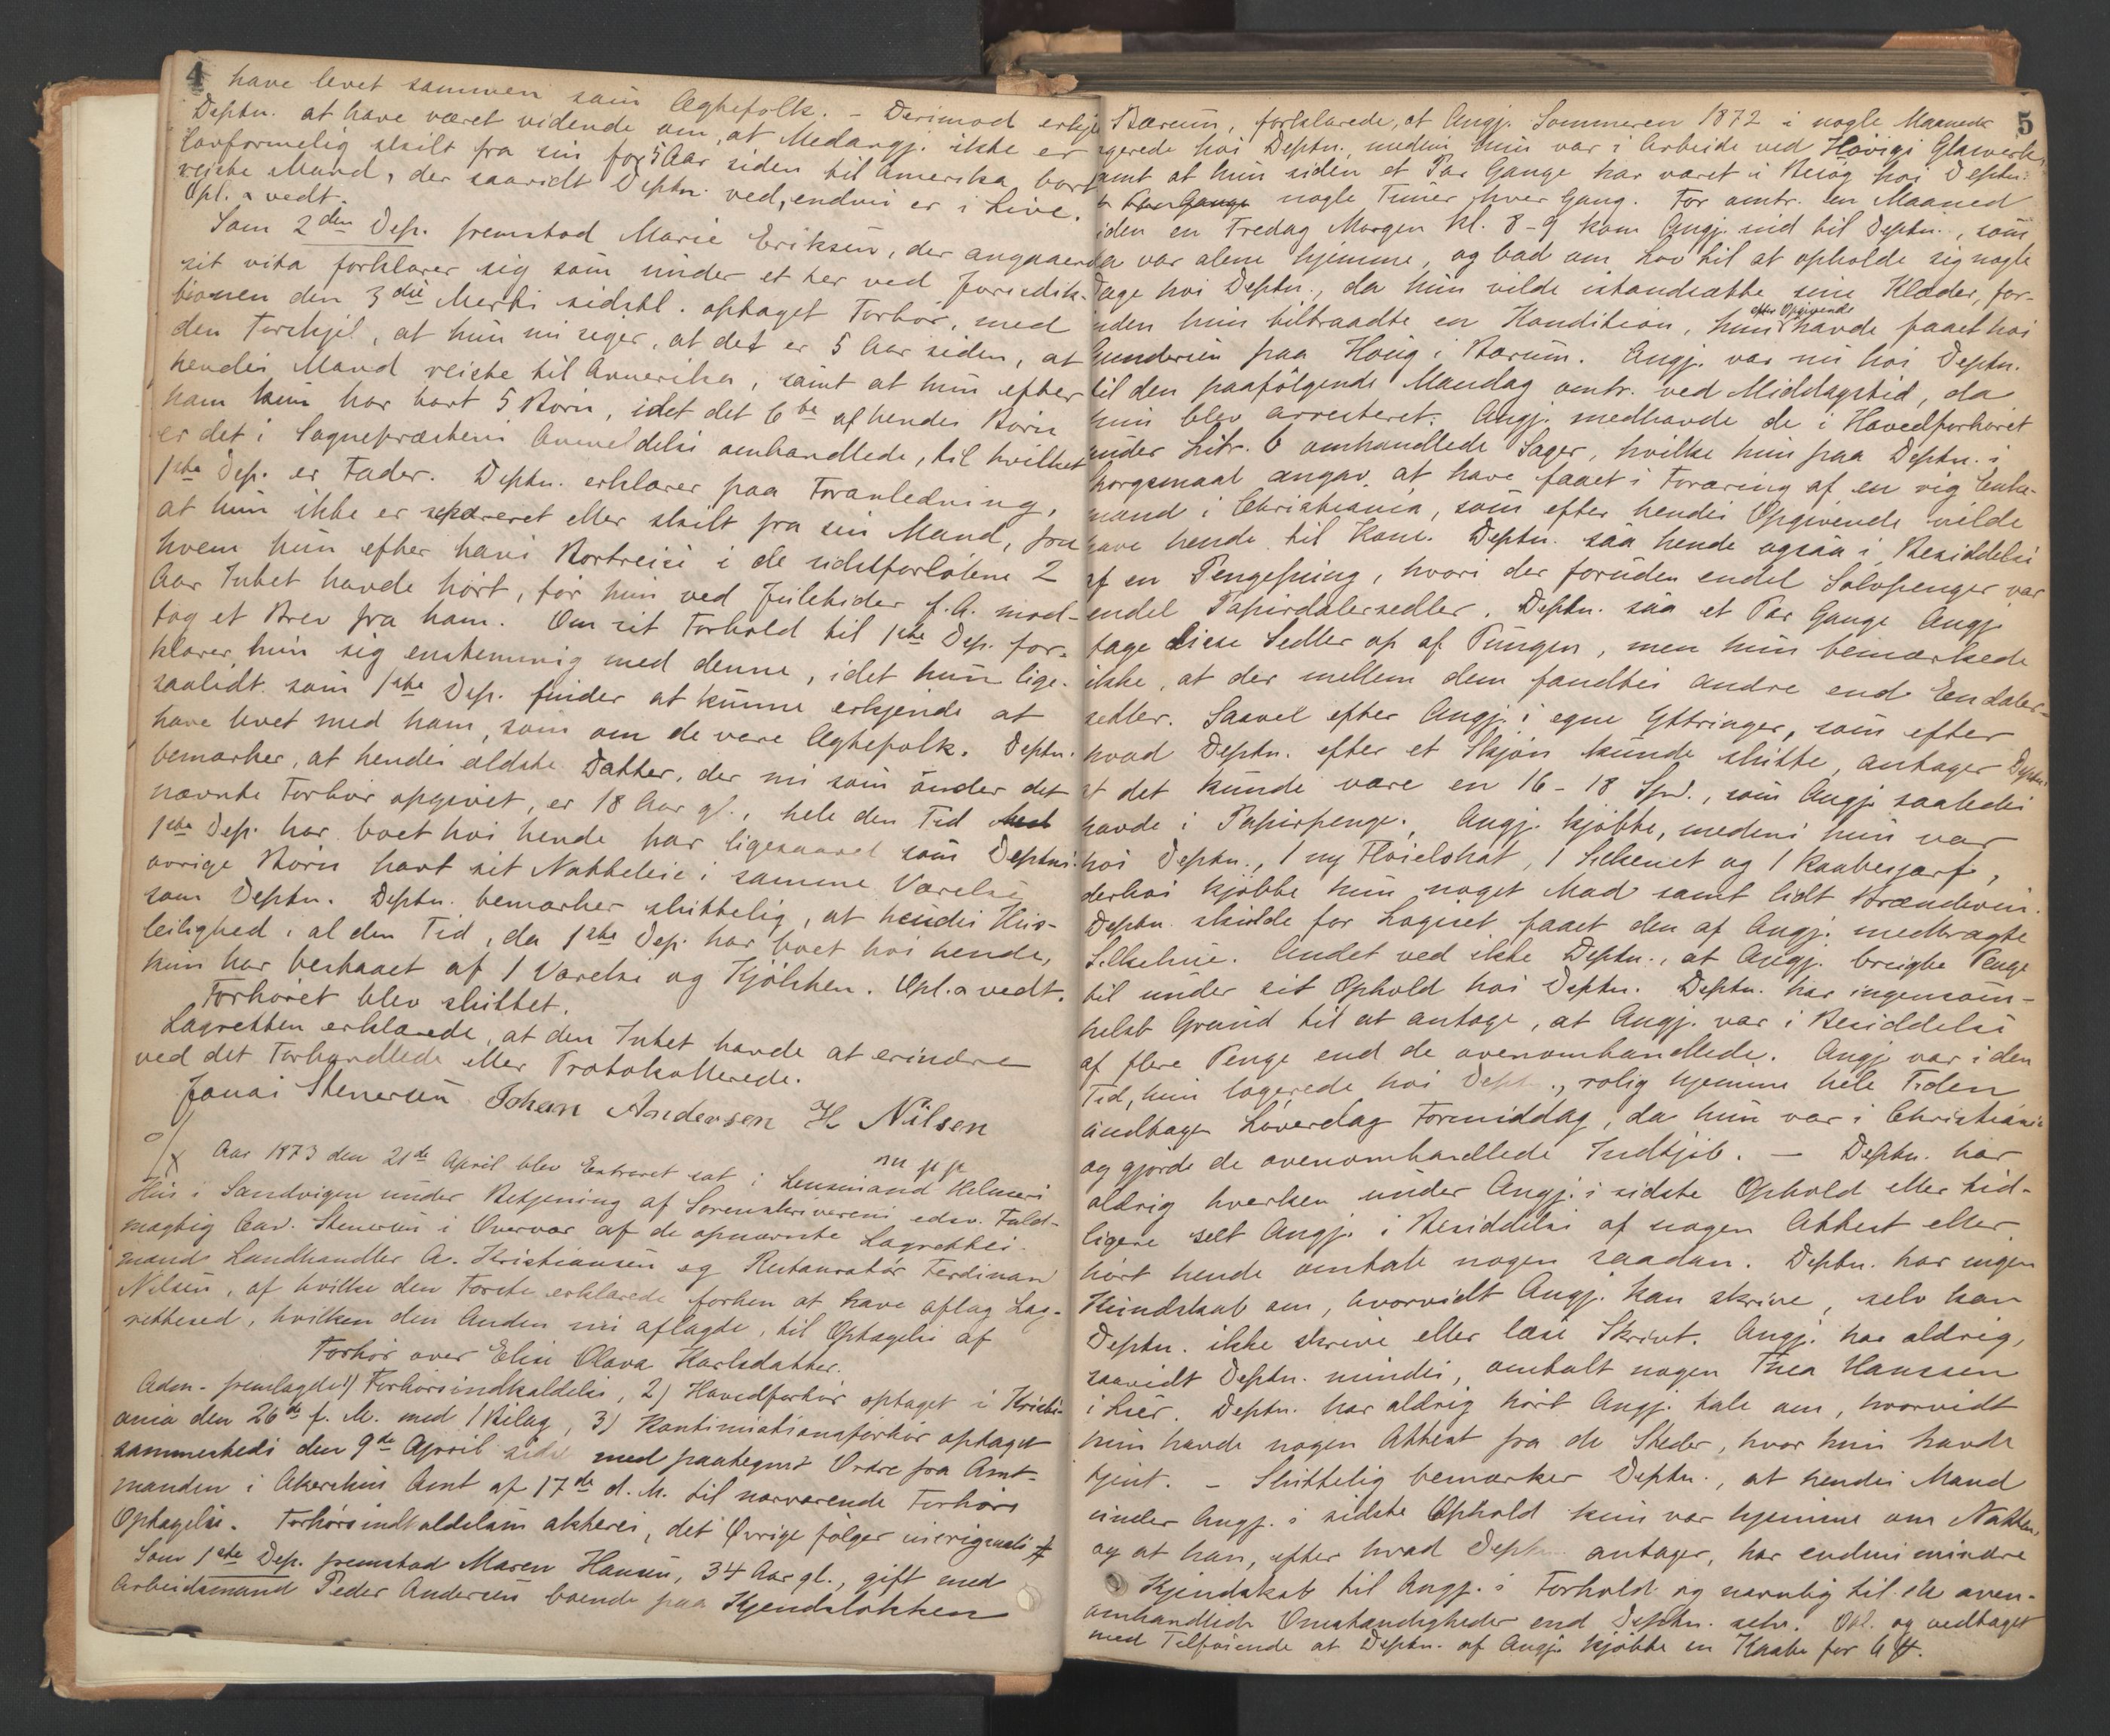 4
have levet sammen som Ægtefolk. - Derimod erkjen
Deptn. at have været vidende om, at Medangj. ikke er
lovformelig skilt fra sin for 5 Aar siden til Amerika bort
reiste Mand, der saavidt Deptn. ved, endnu er i Live.
Opl. & vedt.
Som 2den Dep. fremstod Marie Eriksen, der angaaende
sit vita forklarer sig som under et her ved Jurisdik-
tionen den 3die Marts sidstl. optaget Forhör, med
den Forskjel, at hun nu siger, at det er 5 Aar siden, at
hendes Mand reiste til Amerika, samt at hun efter
ham kun har havt 5 Börn, idet det 6te af hendes Börn
er det i Sognepræstens Anmeldelse omhandlede, til hvilket
1ste Dep. er Fader. Deptn. erklærer paa Foranledning,
at hun ikke er separeret eller skilt fra sin Mand, fra
hvem hun efter hans Bortreise i de sidstforløbne 2
Aar Intet havde hört, för hun ved Juletider f. A. mod-
tog et Brev fra ham. Om sit Forhold til 1ste Dep. for-
klarer hun sig enstemmig med denne, idet hun lige-
saalidt som 1ste Dep. finder at kunne erkjende at
have levet med ham, som om de vare Ægtefolk. Deptn.
bemærker, at hendes ældste Datter, der nu som under det
nævnte Forhör opgivet, er 18 Aar gl., hele den Tid
1ste Dep. har boet hos hende har ligesaavel som Deptns.
övrige Börn havt sit Natteleie i samme Værelse
som Deptn. Deptn. bemærker sluttelig, at hendes Hus-
leilighed, al den Tid, da 1ste Dep. har boet hos hende,
kun har bestaaet af 1 Værelse og Kjökken. Opl. & vedt.
Forhöret blev sluttet.
Lagretten erklærede, at den Intet havde at erindre
ved det Forhandlede eller Protokollerede.
Jonas Stenersen Johan Andersen H Nilsen
m p p
Aar 1873 den 21de April blev Extraret sat i Lensmand Helmers
Hus i Sandvigen under Betjening af Sorenskriverens edsv. Fuld-
mægtig Cand. Stenersen i Overvær af de opnævnte Lagrettes-
mænd Landhandler A. Kristiansen og Restauratör Ferdinan
Nilsen, af hvilke den Förste erklærede forhen at have aflag Lag-
rettesed, hvilken den Anden nu aflagde, til Optagelse af
Forhör over Elise Olava Karlsdatter.
Adm. fremlagde 1) Forhörsindkaldelse, 2) Hovedforhör optaget i Kristi-
ania den 26de f. M. med 1 Bilag, 3) Kontinuationsforhör optaget
sammesteds den 9de April sidstl. med paategnet Ordre fra Amt-
manden i Akershus Amt af 17de d. M. til nærværende Forhörs
Optagelse. Forhörsindkaldelsen akteres, det Övrige fölger in originali
Som 1ste Dep. fremstod Maren Hansen, 34 Aar gl., gift med
Arbeidsmand Peder Andersen boende paa Kjendsløkken
5
Bærum, forklarede, at Angj. Sommeren 1872 i nogle Maaneder
ogerede hos Deptn., medens hun var i Arbeide ved Höviks Glasverk,
samt at hun siden et Par Gange har været i Besög hos Deptn.
nogle Timer hver Gang. For omtr. en Maaned
siden en Fredag Morgen kl. 8-9 kom Angj. ind til Deptn., som
da var alene hjemme, og bad om Lov til at opholde sig nogle
Dage hos Deptn., da hun vilde istandsætte sine Klæder, for-
inden hun tiltraadte en Kondition, hun efter Opgivende havde faaet hos
Gundersen paa Houg i Bærum. Angj. var nu hos Deptn.
til den paafölgende Mandag omtr. ved Middagstid, da
hun blev arresteret. Angj. medhavde de i Hovedforhöret
under Litr. C omhandlede Sager, hvilke hun paa Deptn.s
Spörgsmaal angav at have faaet i Foræring af en rig Enke-
mand i Christiania, som efter hendes Opgivende vilde
have hende til Kone. Deptn. saa hende ogsaa i Besiddelse
af en Pengepung, hvori der foruden endel Sölvpenger var
endel Papirdalersedler. Deptn. saa et Par Gange Angj.
tage disse Sedler op af Pungen, men hun bemærkede
ikke, at der mellem dem fandtes andre end Eendaler-
sedler. Saavel efter Angj.s egne Yttringer, som efter
hvad Deptn. efter et Skjön kunde slutte, antager Deptn.
at det kunde være en 16-18 Spd., som Angj. saaledes
havde i Papirpenge. Angj. kjöbte, medens hun var
hos Deptn., 1 ny Flöielshat, 1 Silkenet og 1 Kaabeskjærf,
derhos kjöbte hun noget Mad samt lidt Brændevin.
Deptn. skulde for Logiset faaet den af Angj. medbragte
Silkehue. Andet ved ikke Deptn., at Angj. brugte Penge
til under sit Ophold hos Deptn. Deptn. har ingensom-
helst Grund til at antage, at Angj. var i Besiddelse
af flere Penge end de ovenomhandlede. Angj. var i den
Tid, hun logerede hos Deptn., rolig hjemme hele Tiden
undtagen Löverdag Formiddag, da hun var i Christiania
og gjorde de ovenomhandlede Indkjöb. - Deptn. har
aldrig hverken under Angj.s sidste Ophold eller tid-
ligere seet Angj. i Besiddelse af nogen Attest eller
hört hende omtale nogen saadan. Deptn. har ingen
Kundskab om, hvorvidt Angj. kan skrive, selv kan
Deptn. ikke skrive eller læse Skrivt. Angj. har aldrig,
saavidt Deptn. mindes, omtalt nogen Thea Hanssen
i Lier. Deptn. har aldrig hört Angj. tale om, hvorvidt
hun havde nogen Attest fra de Steder, hvor hun havde
tjent. - Sluttelig bemærker Deptn., at hendes Mand
under Angj.s sidste Ophold kun var hjemme om Natten,
og at han, efter hvad Deptn. antager, har endnu mindre
Kjendskab til Angj.s Forhold og navnlig til de oven-
omhandlede Omstændigheder end Deptn. selv. Opl. og vedtaget
med Tilföiende at Deptn. af Angj. kjöbte en Kaabe for